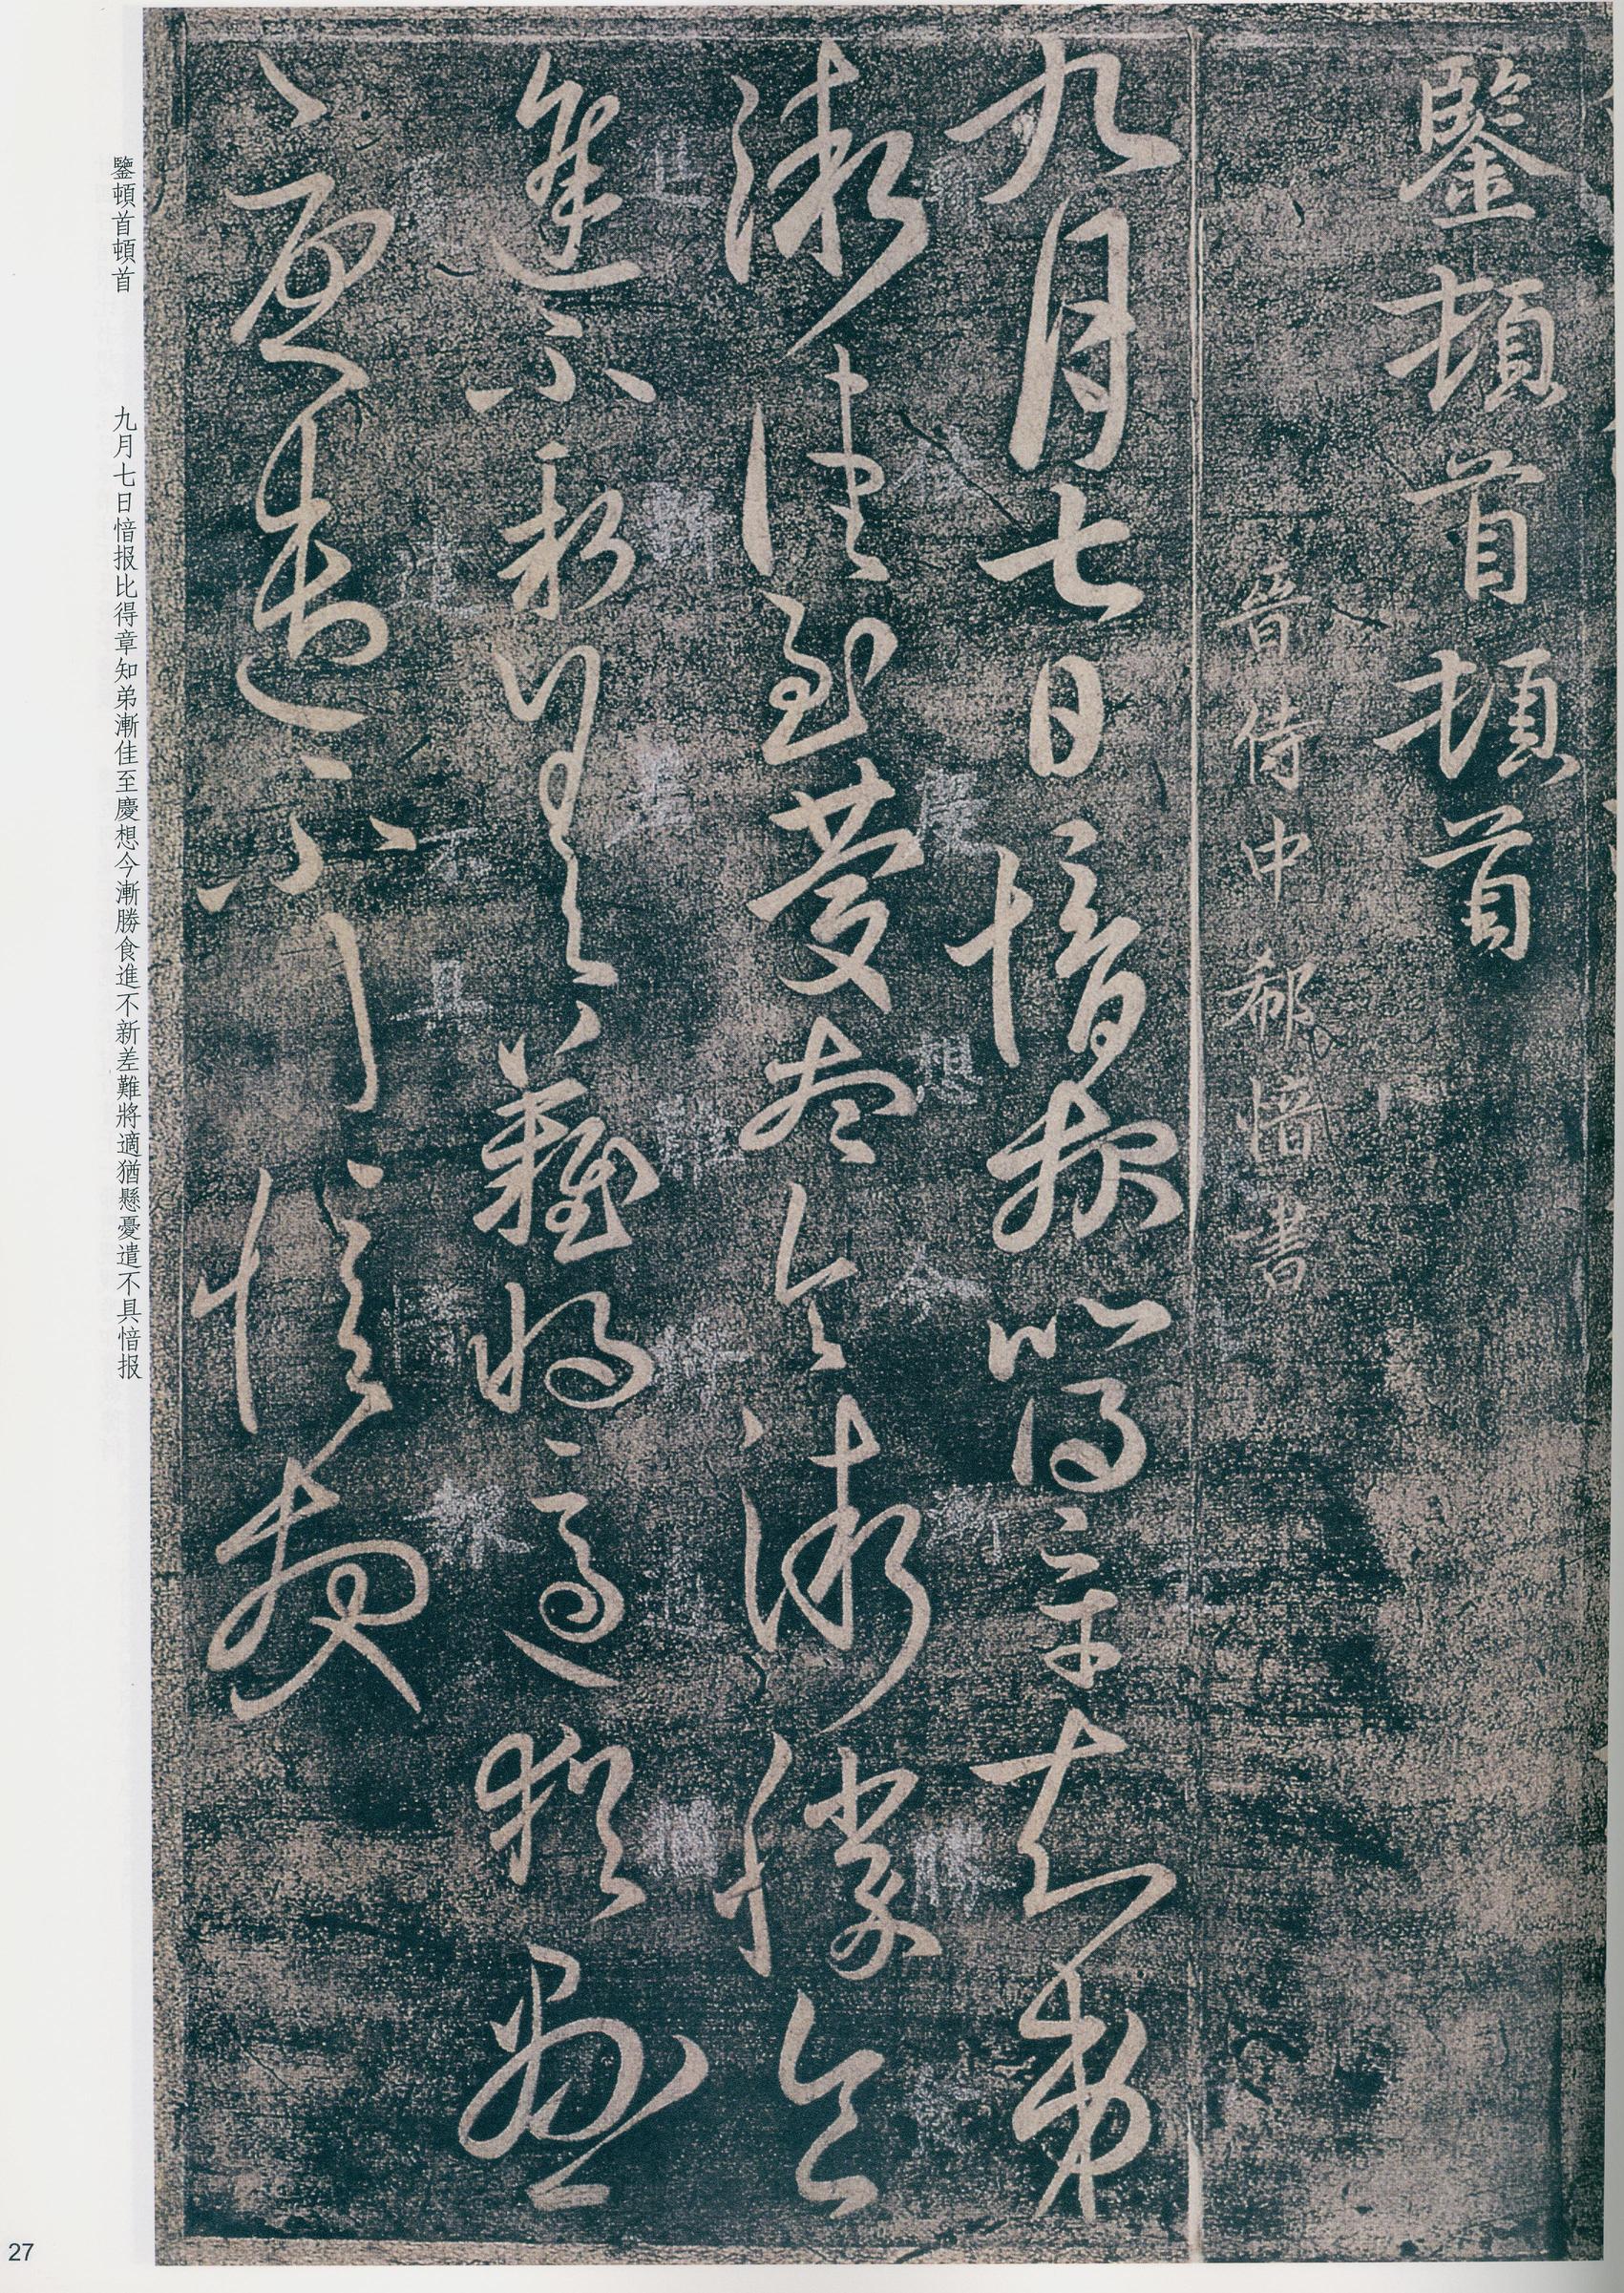 鑒頓首頓首
晉侍中郗愔書
九月七日愔報比得章知弟
漸佳至慶想今漸勝食
進不新差難將適猶懸
憂遣不具愔報
鑒頓首頓首
九月七日愔报比得章知弟漸佳至慶想今漸勝食進不新差難將適猶懸憂遣不具愔报
27